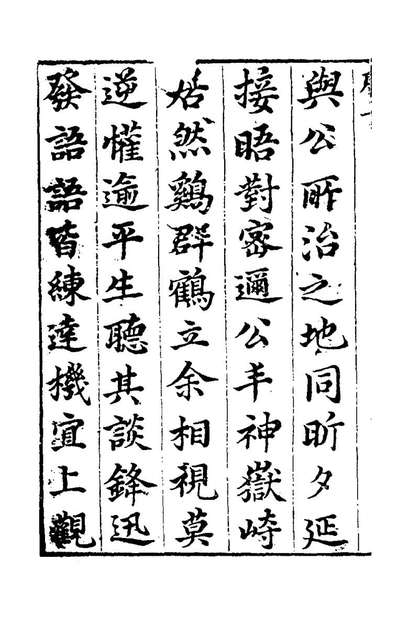 與公所治之地同昕夕延
接晤對密邇公丰神嶽崎
居然鷄群鶴立余相視莫
逆懽逾平生聽其談鋒迅
發語語皆練達機宜上觀